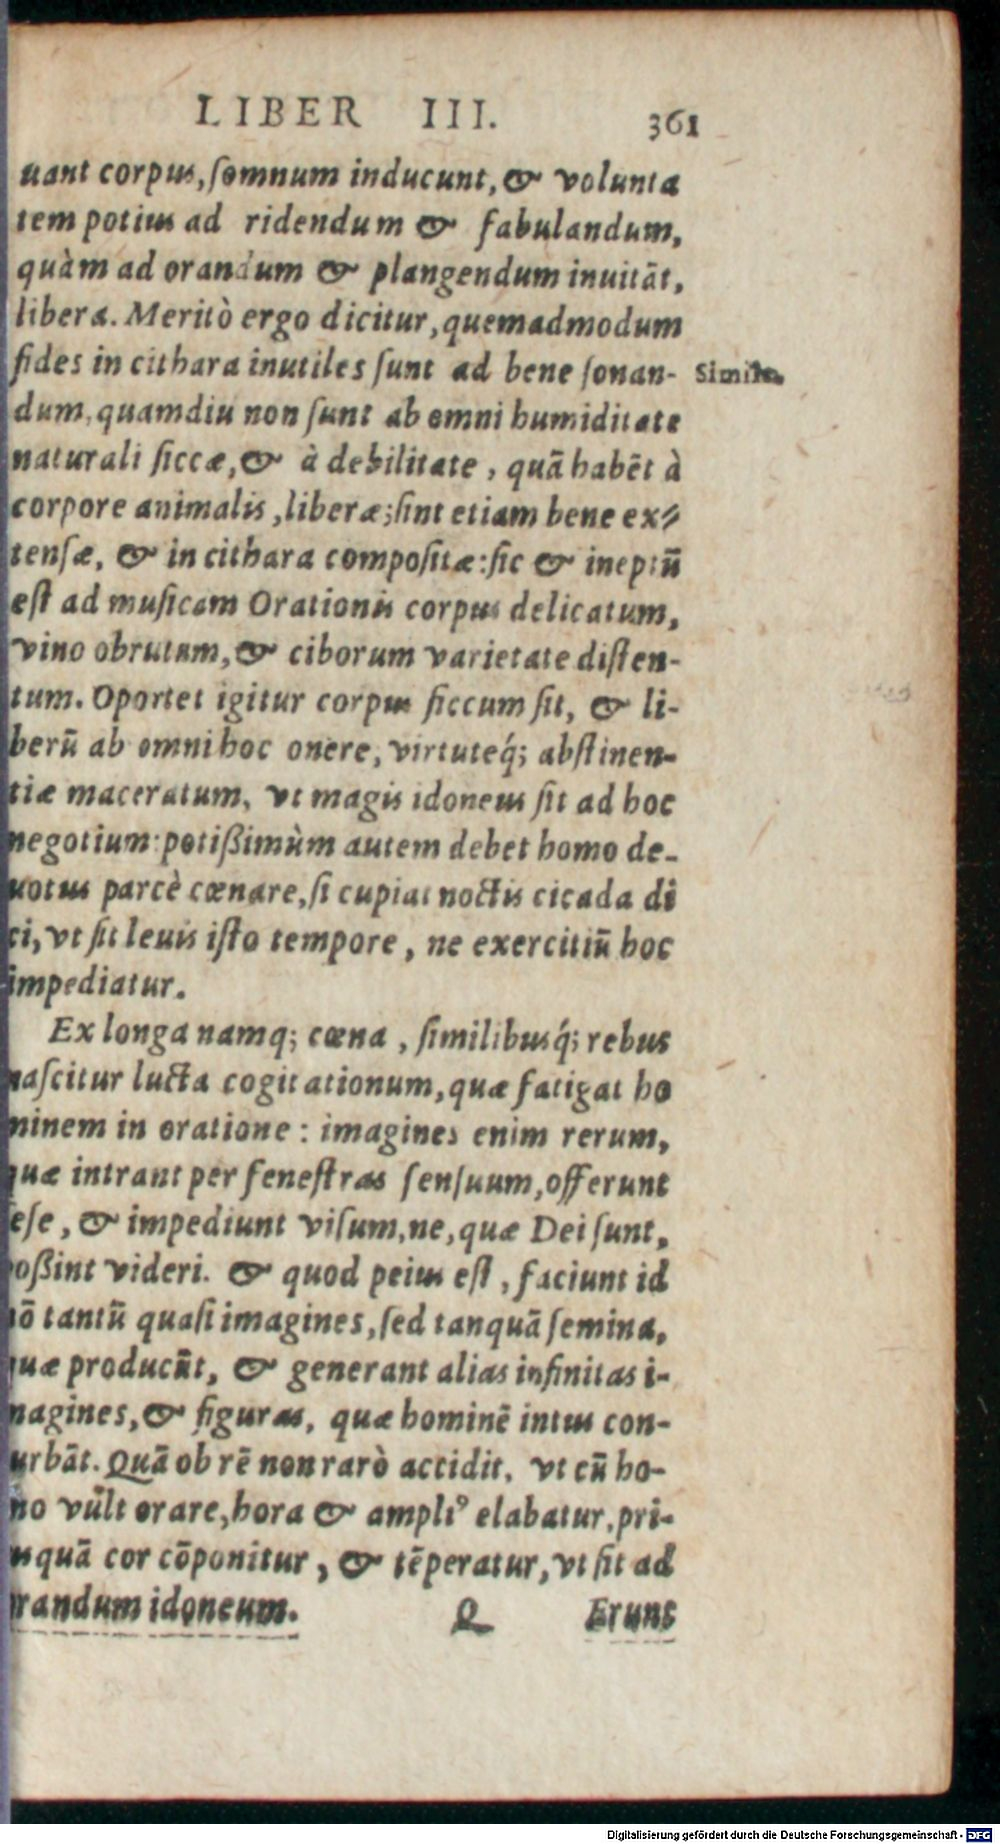 LIBER III. 361
uant corpus, ſomnum inducunt, & volunta
tem potius ad ridendum & fabulandum,
quàm ad orandum & plangendum inuitāt,
libera. Meritò ergo dicitur, quemadmodum
fides in cithara inutiles ſunt ad bene ſonan- Simile.
dum, quamdiu non ſunt ab omni humiditate
naturali ſiccæ, & à debilitate, quā habēt à
corpore animalis, liberæ; ſint etiam bene ex⸗
tenſæ, & in cithara compoſitæ: ſic & ineptū
eſt ad muſicam Orationis corpus delicatum,
vino obrutum, & ciborum varietate diſten-
tum. Oportet igitur corpus ſiccum ſit, & li-
berū ab omni hoc onere, virtuteq́; abſtinen-
tiæ maceratum, vt magis idoneus ſit ad hoc
negotium: potißimùm autem debet homo de-
uotus parcè cœnare, ſi cupiat noctis cicada di
ci, vt ſit leuis iſto tempore, ne exercitiū hoc
impediatur.
Ex longa namq; cœna, ſimilibusq́; rebus
naſcitur lucta cogitationum, quæ fatigat ho
minem in oratione: imagines enim rerum,
quæ intrant per feneſtras ſenſuum, offerunt
ſeſe, & impediunt viſum, ne, quæ Dei ſunt,
oßint videri. & quod peius eſt, faciunt id
nō tantū quaſi imagines, ſed tanquā ſemina,
quæ producūt, & generant alias infinitas i-
magines, & figuras, quæ hominē intus con-
urbāt. Quā ob rē non rarò accidit, vt cū ho-
mo vult orare, hora & ampliꝰ elabatur, pri-
usquā cor cōponitur, & tēperatur, vt ſit ad
randum idoneum. Q Erunt
Digitalisierung gefördert durch die Deutsche Forschungsgemeinschaft - DFG